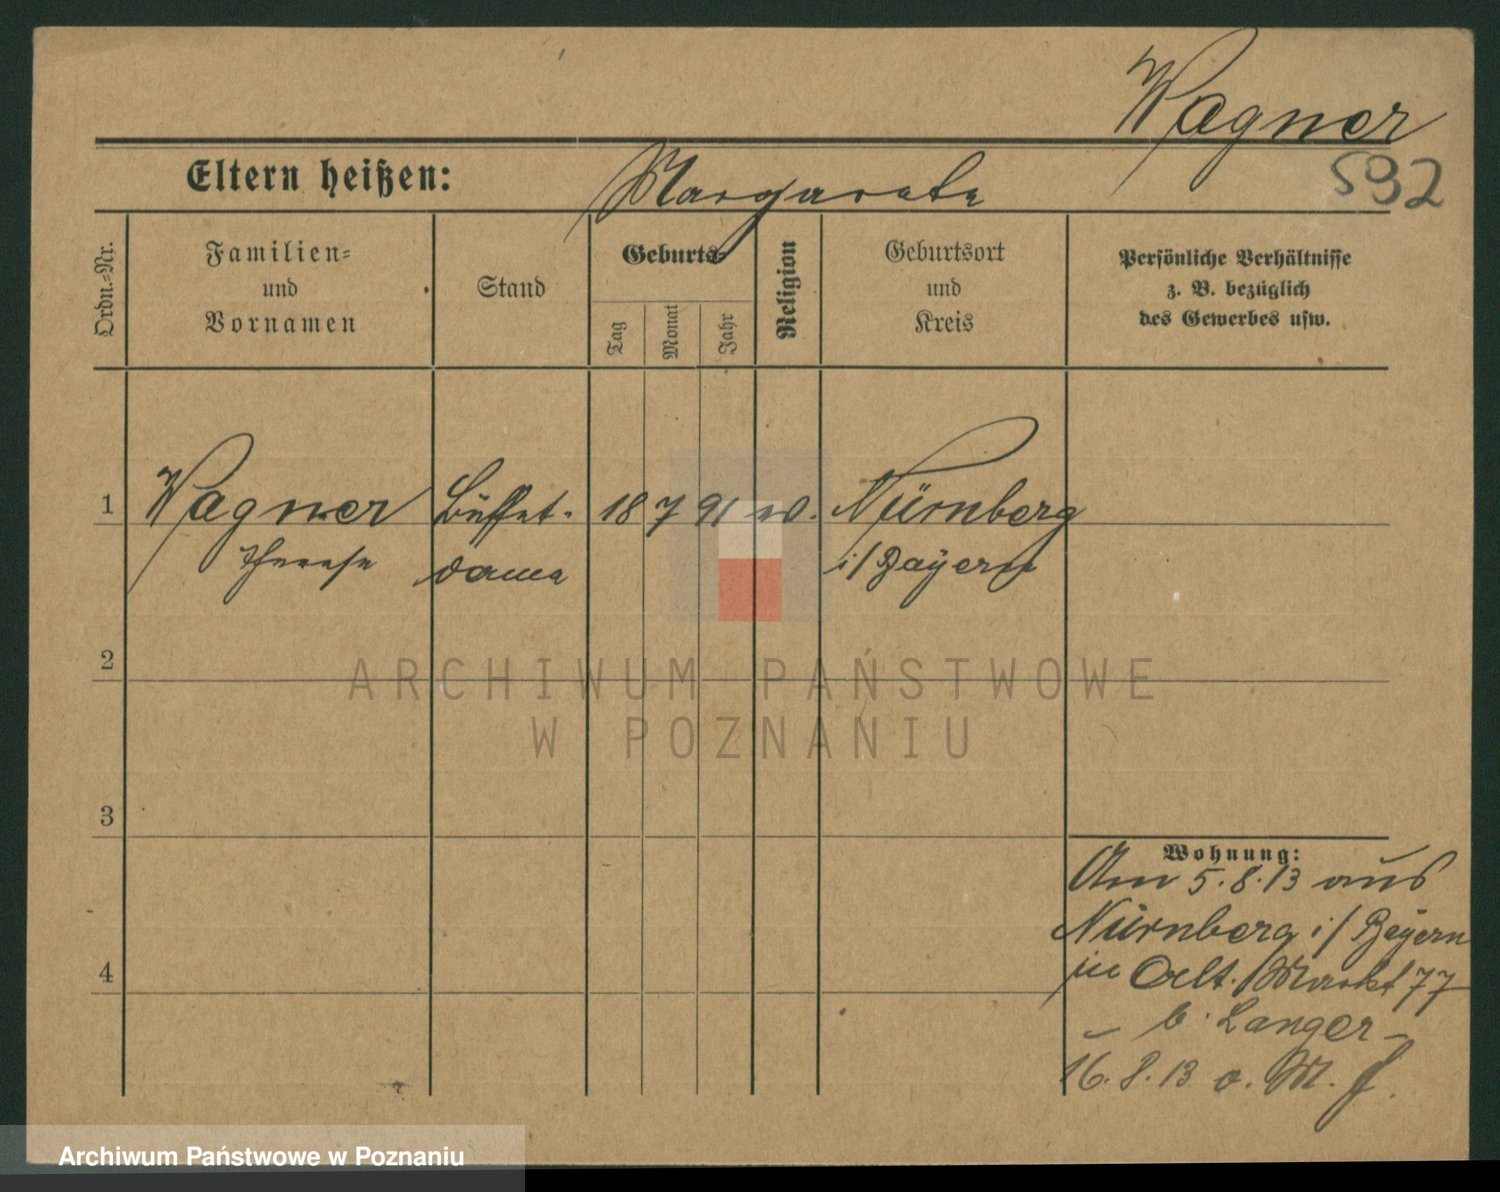 Wagner
592
Eltern heißen: Margarete
Ordn.-Nr.
Familien-
und
Vornamen
Stand
Geburts-
Tag
Monat
Jahr
Religion
Geburtsort
und
Kreis
Persönliche Verhältnisse
z. B. bezüglich
des Gewerbes usw.
1 Wagner Büffet- 18 7 91 Nürnberg
Therese dame i/Bayern
2
3
4
Wohnung:
Am 5.8.13 aus
Nürnberg i/Bayern
in Alt. Markt 77
– b. Langer –
16.8.13 o. M.
ARCHIWUM PAŃSTWOWE
W POZNANIU
Archiwum Państwowe w Poznaniu